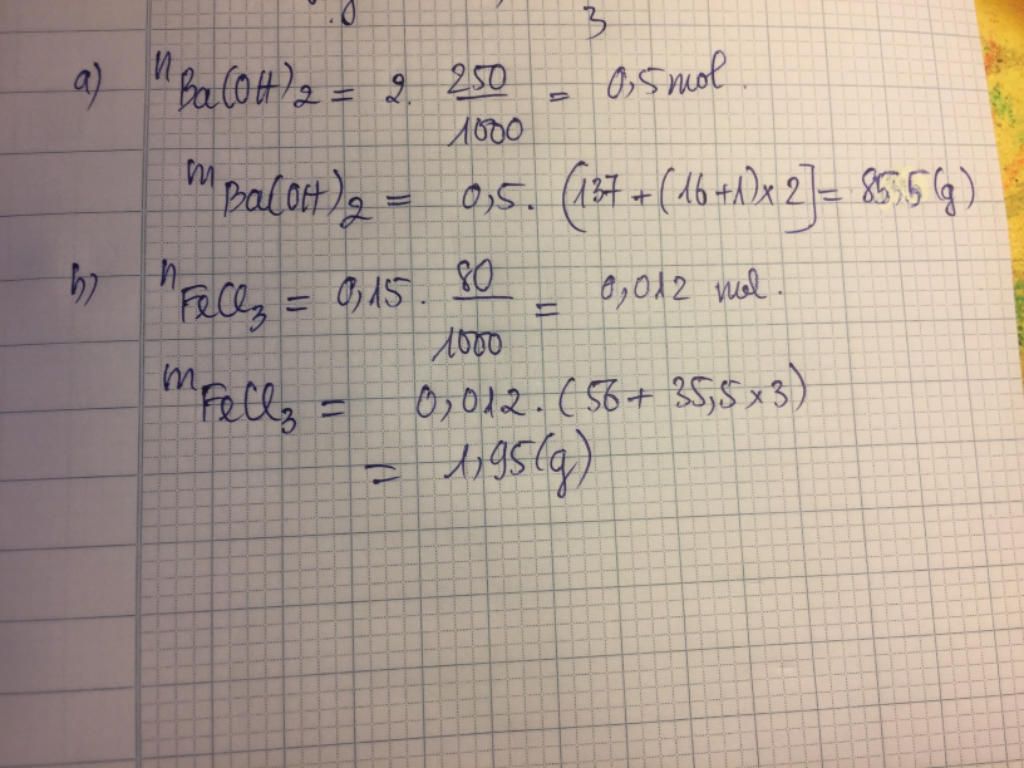 3
a) nBa(OH)2 = 2. 250/1000 = 0,5 mol.
mBa(OH)2 = 0,5. (137 + (16+1)x2] = 85,5(g)
b) nFeCl3 = 0,15. 80/1000 = 0,012 mol.
mFeCl3 = 0,012. (56 + 35,5x3)
= 1,95(g)